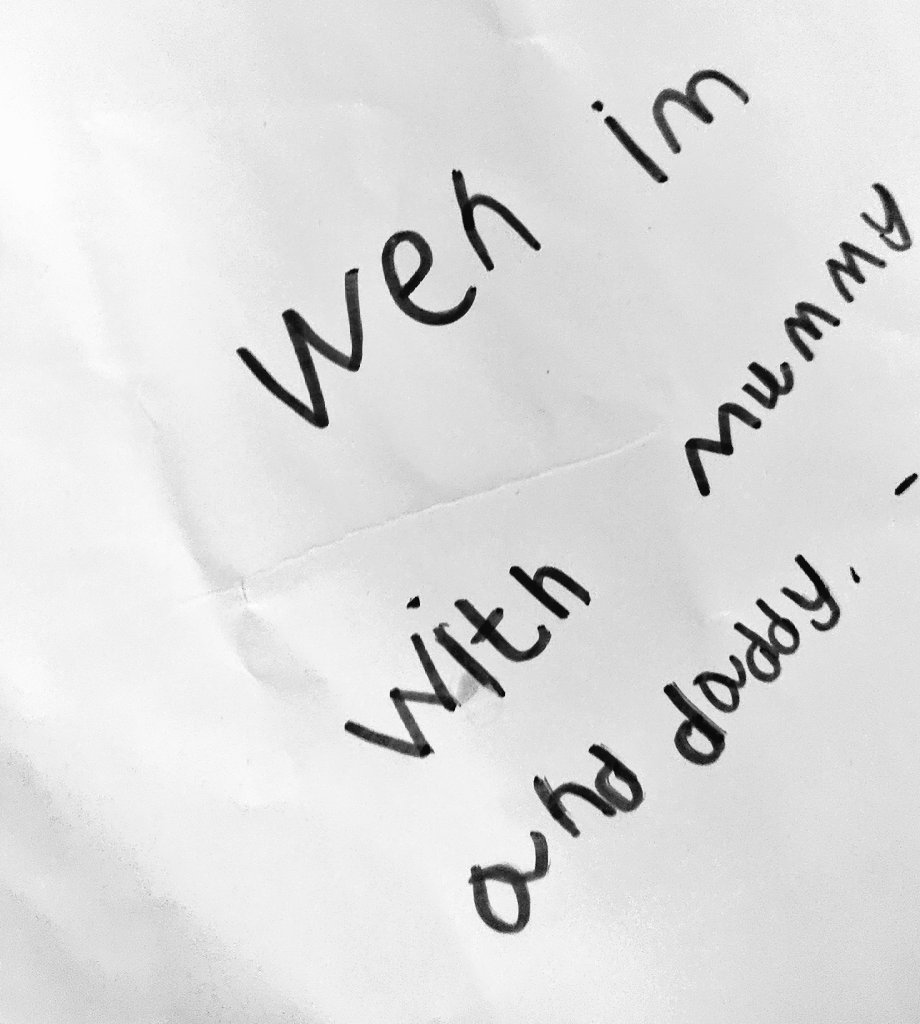 wen im
with mummy
and daddy. -